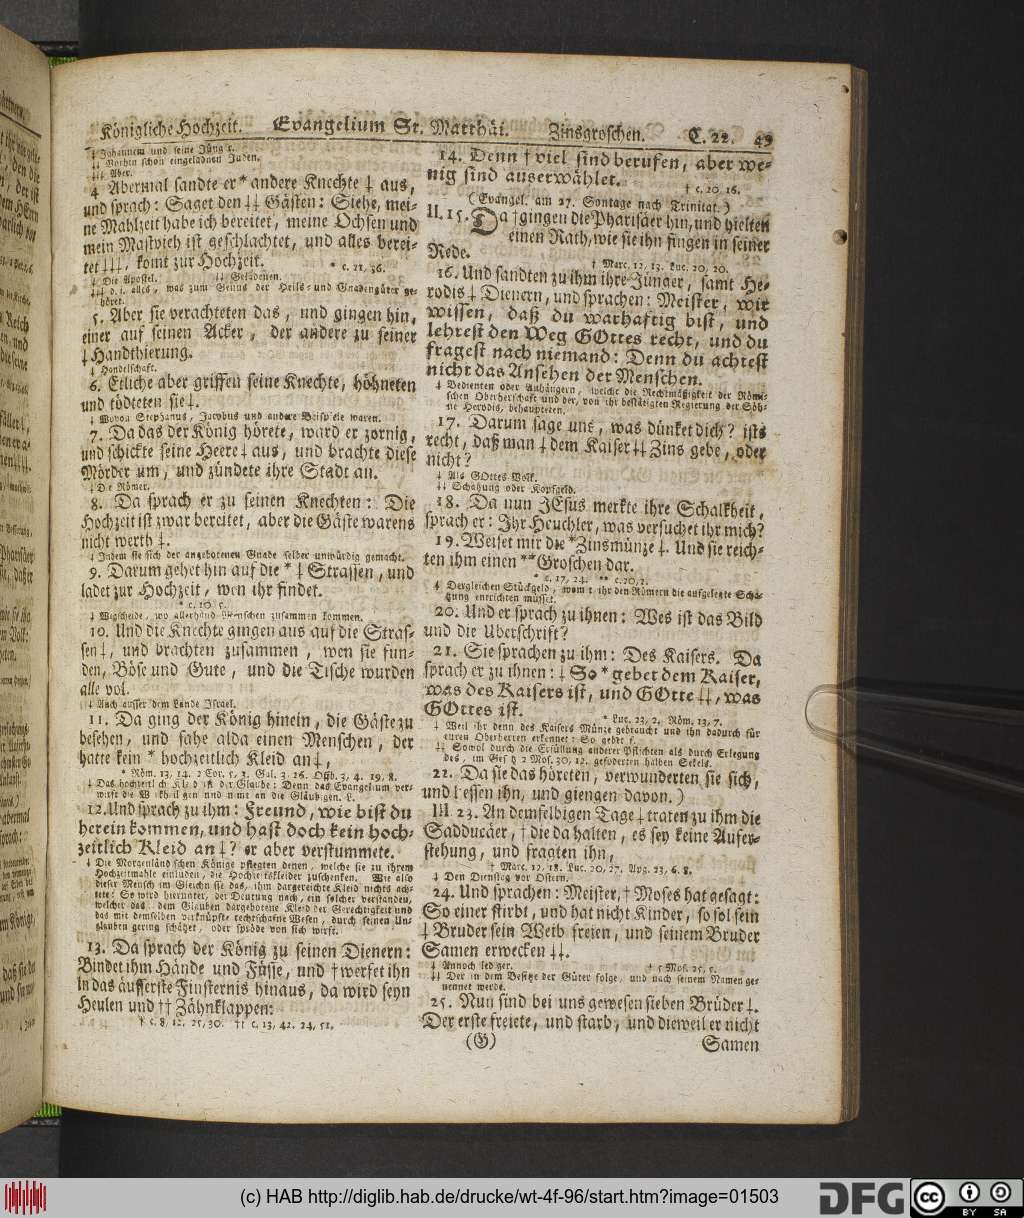 Königliche Hochzeit. Evangelium St. Matthäi. Zinsgroschen. C. 22. 49
‡ Johannem und seine Jünger.
‡‡ Vorhin schon eingeladnen Juden.
‡‡‡ Aber.
4 Abermal sandte er * andere Knechte ‡ aus,
und sprach: Saget den ‡‡ Gästen: Siehe, mei-
ne Mahlzeit habe ich bereitet, meine Ochsen und
mein Mastvieh ist geschlachtet, und alles berei-
tet ‡‡‡, komt zur Hochzeit. * c. 21, 36.
‡ Die Apostel. ‡‡ Geladenen.
‡‡‡ d. i. alles, was zum Genus der Heils- und Gnadengüter ge-
höret.
5. Aber sie verachteten das, und gingen hin,
einer auf seinen Acker, der andere zu seiner
‡ Handthierung.
‡ Handelschaft.
6. Etliche aber griffen seine Knechte, höhneten
und tödteten sie ‡.
‡ Wovon Stephanus, Jacobus und andere Beispiele waren.
7. Da das der König hörete, ward er zornig,
und schickte seine Heere ‡ aus, und brachte diese
Mörder um, und zündete ihre Stadt an.
‡ Die Römer.
8. Da sprach er zu seinen Knechten: Die
Hochzeit ist zwar bereitet, aber die Gäste warens
nicht werth ‡.
‡ Indem sie sich der angebotenen Gnade selber unwürdig gemacht.
9. Darum gehet hin auf die * ‡ Strassen, und
ladet zur Hochzeit, wen ihr findet.
* c. 10, 5.
‡ Wegscheide, wo allerhand Menschen zusammen kommen.
10. Und die Knechte gingen aus auf die Stras-
sen ‡, und brachten zusammen, wen sie fun-
den, Böse und Gute, und die Tische wurden
alle vol.
‡ Auch ausser dem Lande Israel.
11. Da ging der König hinein, die Gäste zu
besehen, und sahe alda einen Menschen, der
hatte kein * hochzeitlich Kleid an ‡,
* Röm. 13, 14. 2 Cor. 5, 3. Gal. 3, 26. Offb. 3, 4. 19, 8.
‡ Das hochzeitlich Kleid ist der Glaube: Denn das Evangelium ver-
wirft die Werkheiligen und nimt an die Gläubigen. L.
12. Und sprach zu ihm: Freund, wie bist du
herein kommen, und hast doch kein hoch-
zeitlich Kleid an ‡? er aber verstummete.
‡ Die Morgenländischen Könige pflegten denen, welche sie zu ihrem
Hochzeitmahle einluden, die Hochzeitskleider zuschenken. Wie also
dieser Mensch im Gleichnisse das, ihm dargereichte Kleid nichts ach-
tete: So wird hierunter, der Deutung nach, ein solcher verstanden,
welcher das, dem Glauben dargebotene Kleid der Gerechtigkeit und
das mit demselben verknüpfte rechtschafne Wesen, durch seinen Un-
glauben gering schätzet, oder spröde von sich wirft.
13. Da sprach der König zu seinen Dienern:
Bindet ihm Hände und Füsse, und † werfet ihn
in das äusserste Finsternis hinaus, da wird seyn
Heulen und †† Zähnklappen:
† c. 8, 12. 25, 30. †† c. 13, 42. 24, 51.
14. Denn † viel sind berufen, aber we-
nig sind auserwählet. † c. 20, 16.
(Evangel. am 27. Sontage nach Trinitat.)
II. 15. Da † gingen die Pharisäer hin, und hielten
einen Rath, wie sie ihn fingen in seiner
Rede. † Marc. 12, 13. Luc. 20, 20.
16. Und sandten zu ihm ihre Jünger, samt He-
rodis ‡ Dienern, und sprachen: Meister, wir
wissen, daß du warhaftig bist, und
lehrest den Weg GOttes recht, und du
fragest nach niemand: Denn du achtest
nicht das Ansehen der Menschen.
‡ Bedienten oder Anhängern, welche die Rechtmäßigkeit der Römi-
schen Oberherschaft und der, von ihr bestätigten Regierung der Söh-
ne Herodis, behaupteten.
17. Darum sage uns, was dünket dich? ists
recht, daß man ‡ dem Kaiser ‡‡ Zins gebe, oder
nicht?
‡ Als GOttes Volk.
‡‡ Schatzung oder Kopfgeld.
18. Da nun JEsus merkte ihre Schalkheit,
sprach er: Ihr Heuchler, was versuchet ihr mich?
19. Weiset mir die * Zinsmünze ‡. Und sie reich-
ten ihm einen ** Groschen dar.
* c. 17, 24. ** c. 20, 2.
‡ Dergleichen Stückgeld, womit ihr den Römern die aufgelegte Scha-
tzung entrichten müsset.
20. Und er sprach zu ihnen: Wes ist das Bild
und die Uberschrift?
21. Sie sprachen zu ihm: Des Kaisers. Da
sprach er zu ihnen: ‡ So * gebet dem Kaiser,
was des Kaisers ist, und GOtte ‡‡, was
GOttes ist. * Luc. 23, 2. Röm. 13, 7.
‡ Weil ihr denn des Kaisers Münze gebraucht und ihn dadurch für
euren Oberherren erkennet: So gebet ꝛc.
‡‡ Sowol durch die Erfüllung anderer Pflichten als durch Erlegung
des, im Gesetz 2 Mos. 30, 12. gefoderten halben Sekels.
22. Da sie das höreten, verwunderten sie sich,
und liessen ihn, und giengen davon.)
III. 23. An demselbigen Tage ‡ traten zu ihm die
Sadducäer, † die da halten, es sey keine Aufer-
stehung, und fragten ihn,
† Marc. 12, 18. Luc. 20, 27. Apg. 23, 6. 8.
‡ Den Dienstag vor Ostern.
24. Und sprachen: Meister, † Moses hat gesagt:
So einer stirbt, und hat nicht Kinder, so sol sein
‡ Bruder sein Weib freien, und seinem Bruder
Samen erwecken ‡‡.
‡ Annoch lediger. † 5 Mos. 25, 5.
‡‡ Der in dem Besitze der Güter folge, und nach seinem Namen ge-
nennet werde.
25. Nun sind bei uns gewesen sieben Brüder ‡.
Der erste freiete, und starb, und dieweil er nicht
(G) Samen
(c) HAB http://diglib.hab.de/drucke/wt-4f-96/start.htm?image=01503
DFG
cc BY SA